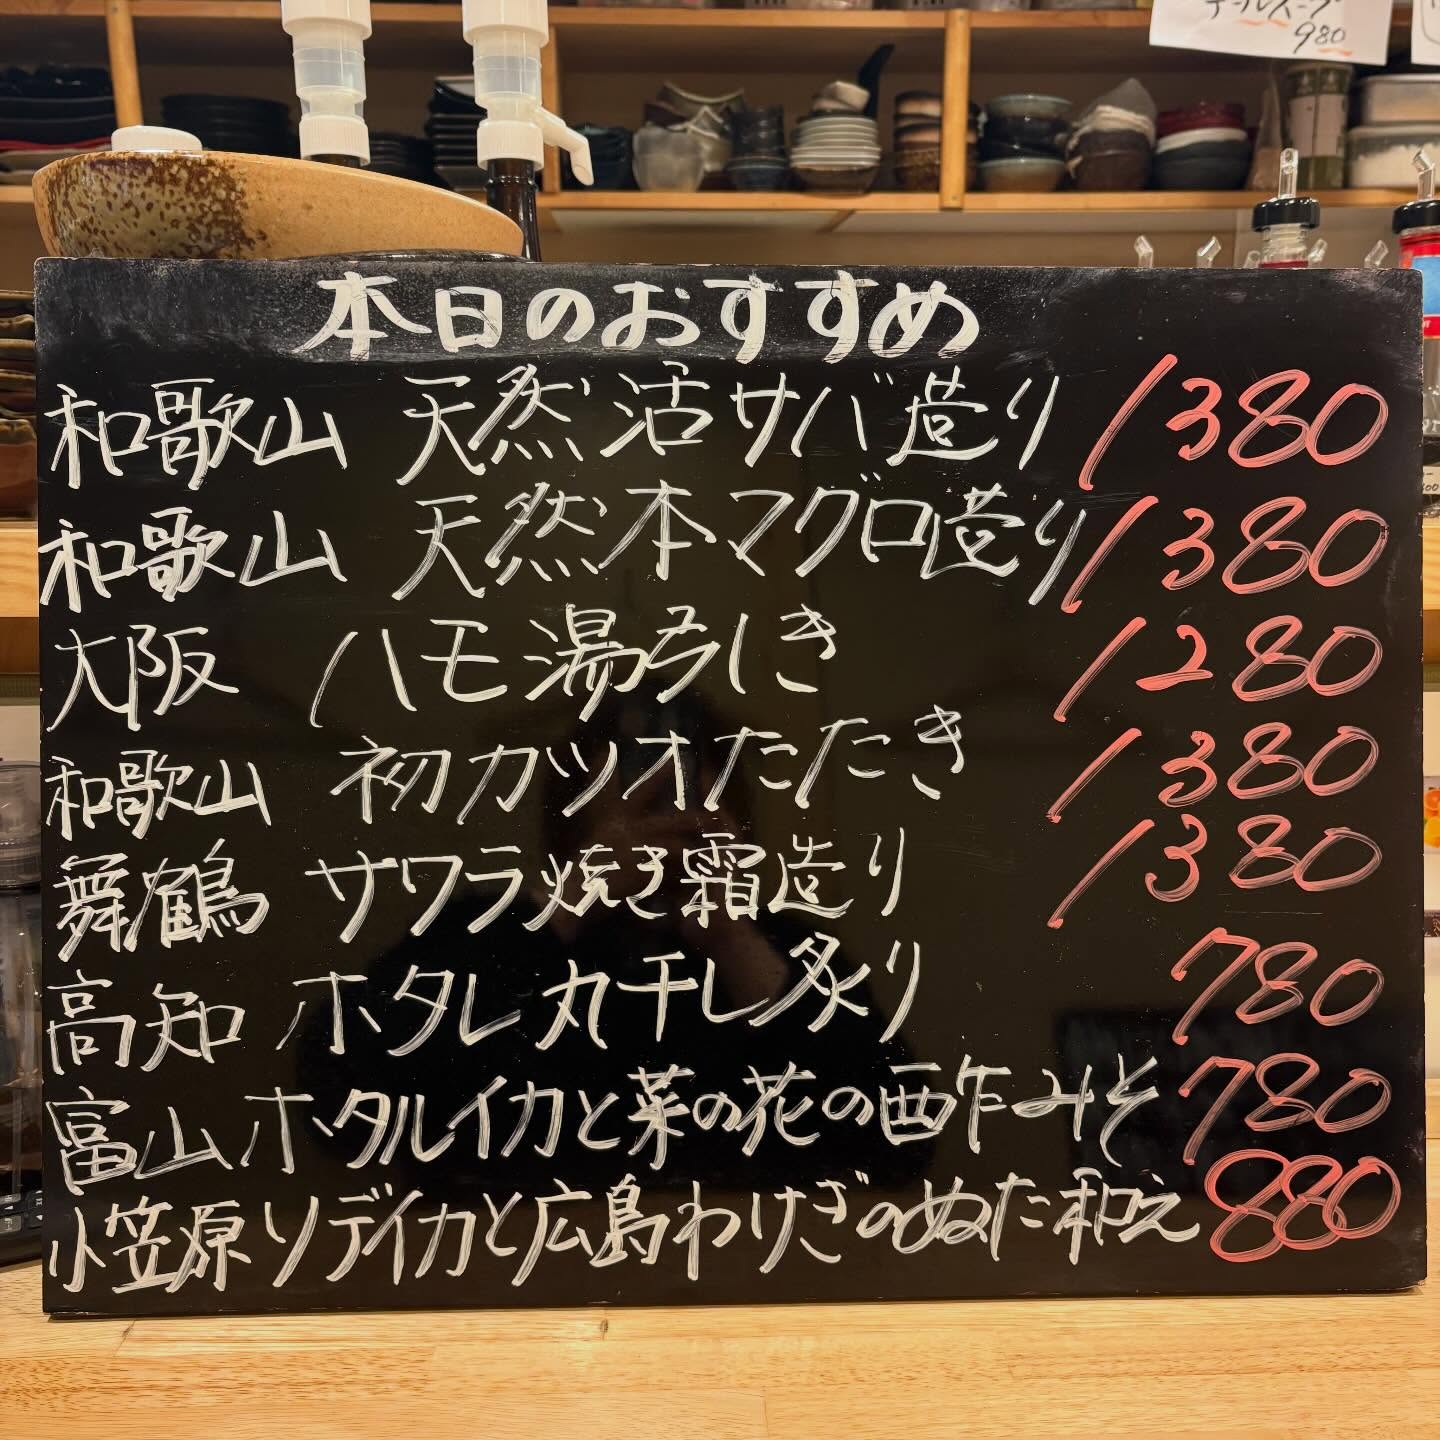 980
本日のおすすめ
和歌山 天然活サバ造り 1380
和歌山 天然本マグロ造り 1380
大阪 ハモ湯引き 1280
和歌山 初カツオたたき 1380
舞鶴 サワラ焼き霜造り 1380
高知 ホタレ丸干し炙り 780
富山 ホタルイカと菜の花の酢みそ 780
小笠原 ソデイカと広島わけぎのぬた和え 880